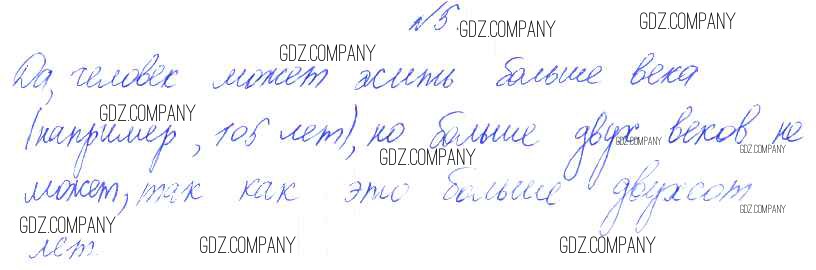 №5.
GDZ.COMPANY GDZ.COMPANY
GDZ.COMPANY
Да, человек может жить больше века
GDZ.COMPANY
(например, 105 лет), но больше двух веков не
GDZ.COMPANY GDZ.COMPANY GDZ.COMPANY
может, так как это больше двухсот
GDZ.COMPANY
GDZ.COMPANY
лет
GDZ.COMPANY GDZ.COMPANY